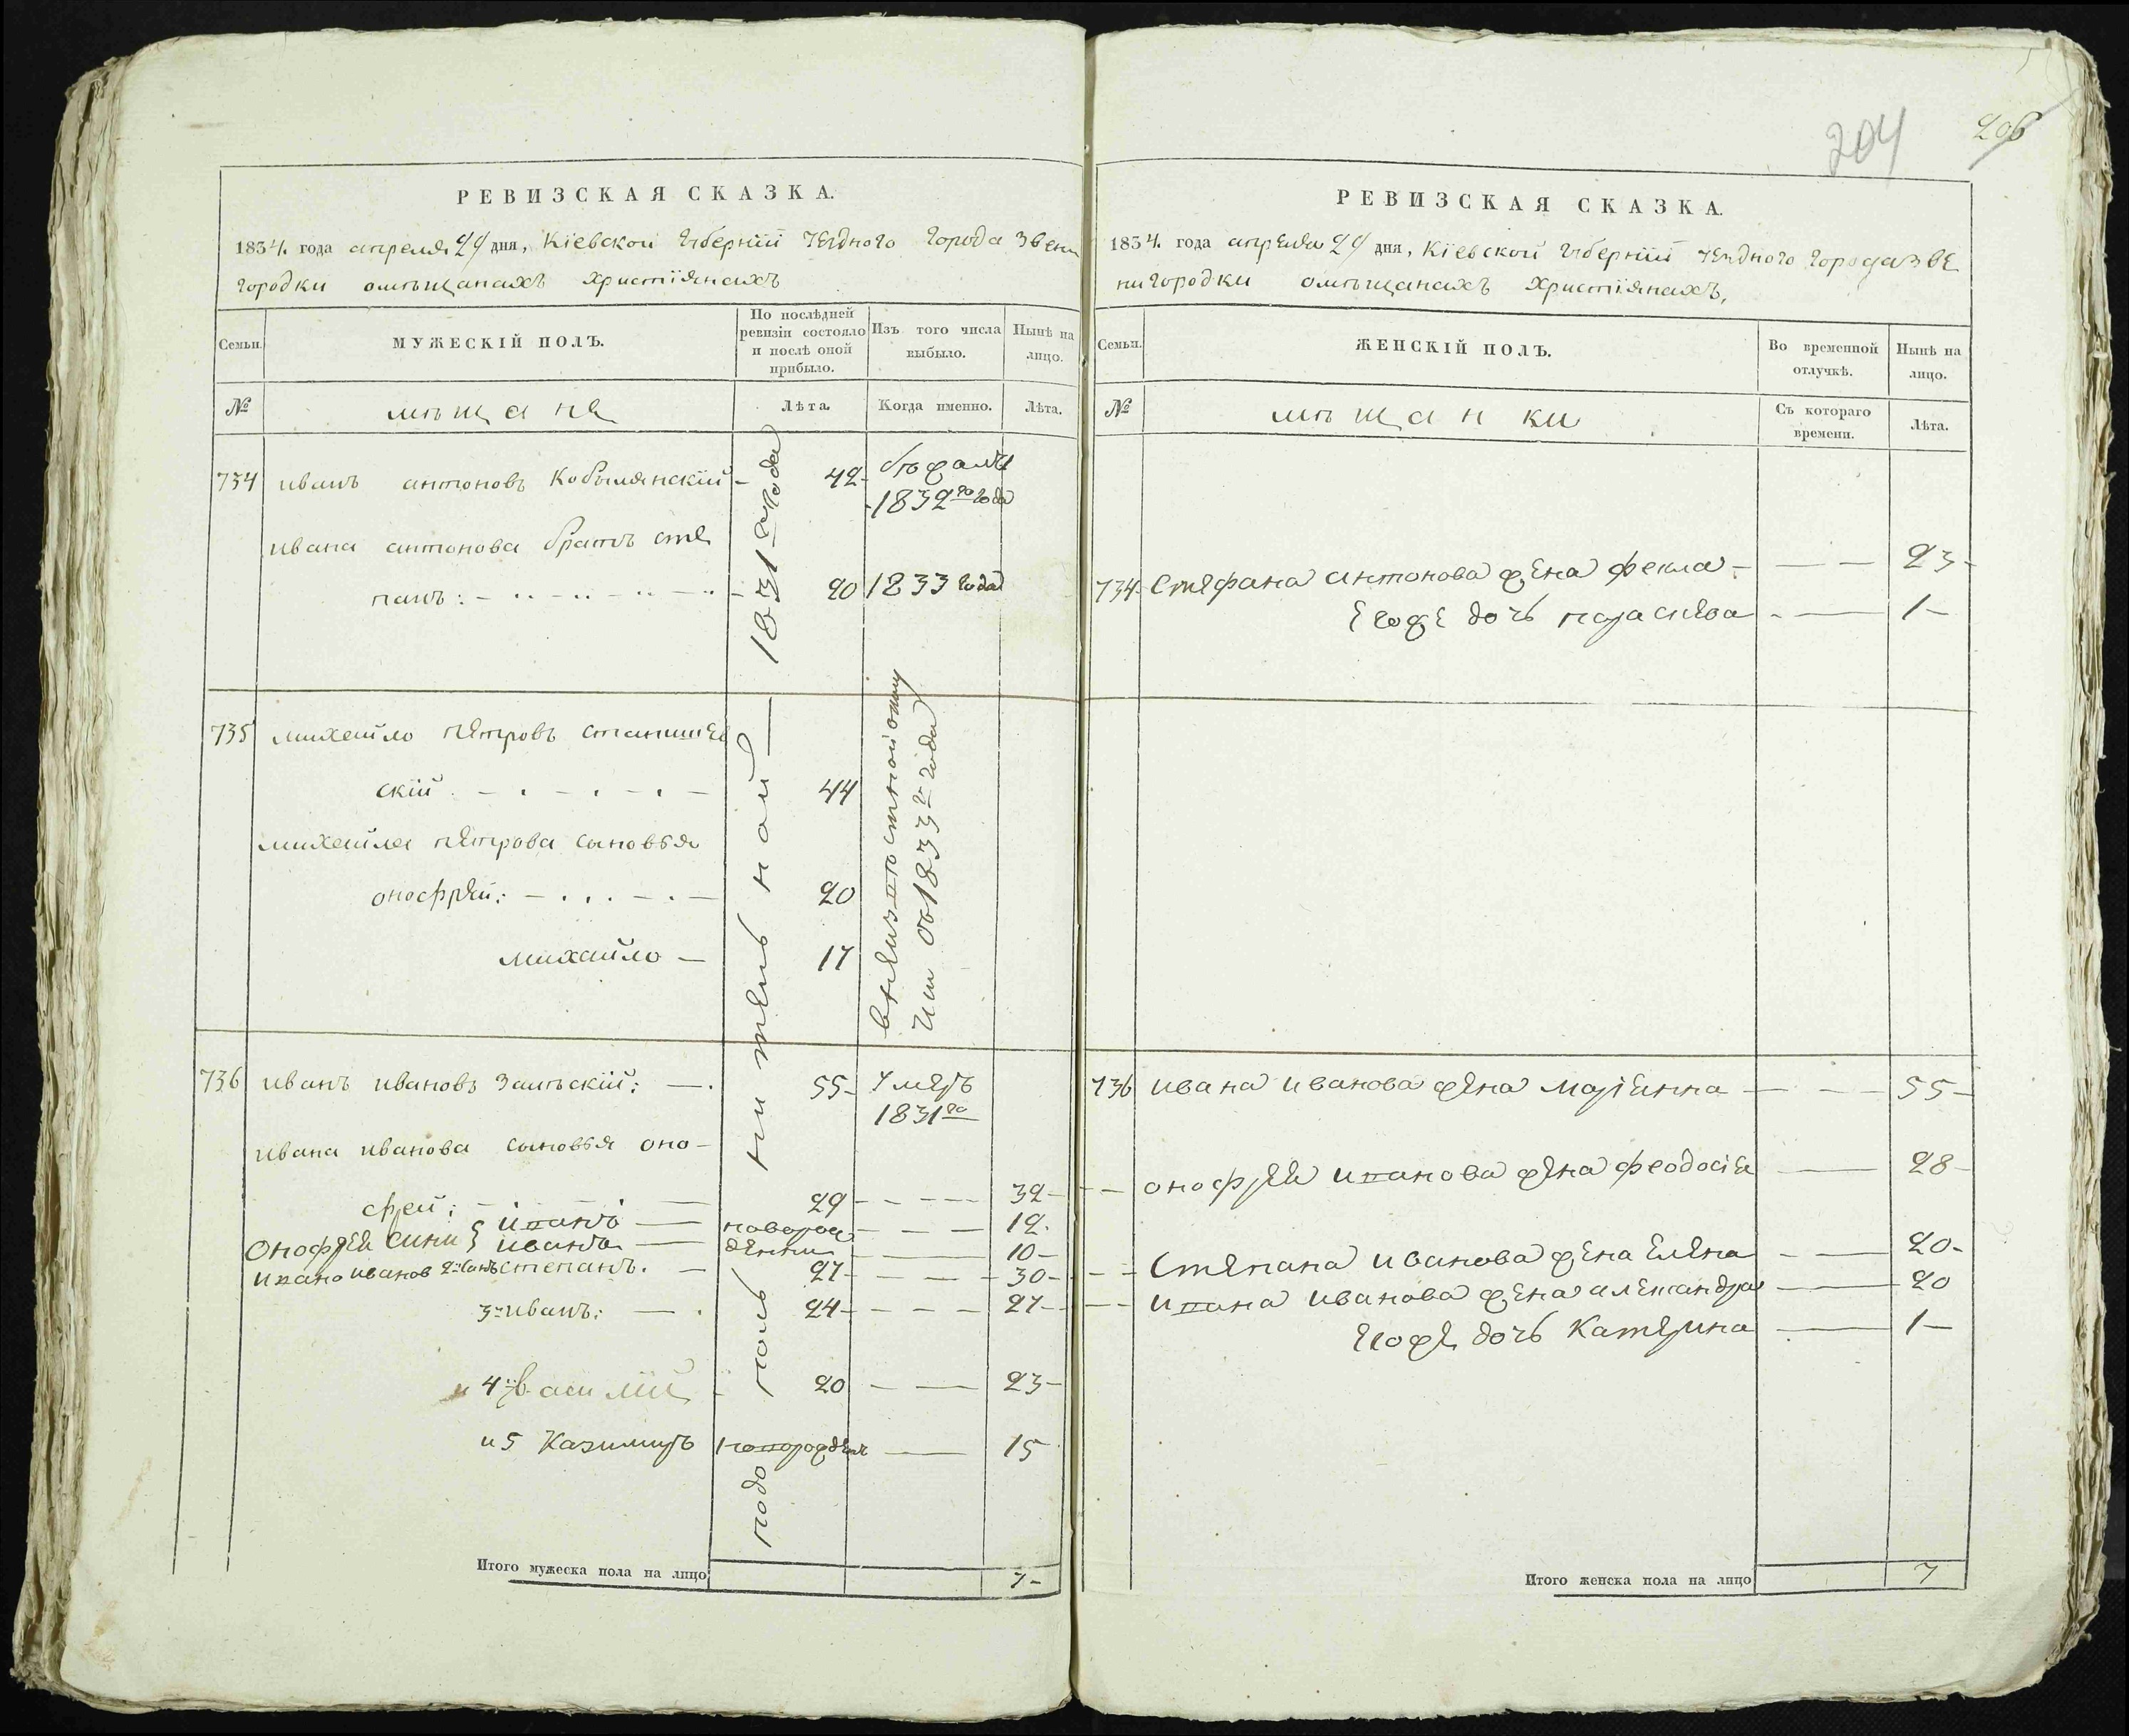 204
206
РЕВИЗСКАЯ СКАЗКА.
1834. года апреля 24 дня, Кіевской Губерніи уезднаго города Звени
городки омѣщанахъ христіянахъ
Семьи. МУЖЕСКІЙ ПОЛЪ. По послѣдней ревизіи состояло и послѣ оной прибыло. Изъ того числа выбыло. Нынѣ на лицо.
№ мѣщане Лѣта. Когда именно. Лѣта.
734 иванъ антоновъ Кобылянскій - 42-
1832го года
ивана антонова братъ сте
панъ: 20 1833 года
735 михайло петровъ станишев
скій 44
михайла петрова сыновья
онофрей: 20
михайло 17
736 иванъ ивановъ Зальскій: 55- умеръ
1831го
ивана иванова сыновья оно-
фрей: 29 32-
Онофрея сини иванъ новорож 12.
иванъ денни 10-
ивано иванов 2й сынъ степанъ. 27- 30-
3й иванъ: 24- 27-
и 4й василій 20 23-
и 5 Казимиръ новорожден 15
подополнительной 1831го года
1833го года
Итого мужеска пола на лицо 7-
РЕВИЗСКАЯ СКАЗКА.
1834. года апреля 24 дня, Кіевской Губерніи уезднаго города Зве
нигородки омѣщанахъ христіянахъ,
Семьи. ЖЕНСКІЙ ПОЛЪ. Во временной отлучкѣ. Нынѣ на лицо.
№ мѣщанки Съ котораго времени. Лѣта.
734 Стефана антонова жена фекла - 23-
Егоже дочь параскева 1-
736 ивана иванова жена Маріанна 55-
онофрея иванова жена феодосія 28-
Степана иванова жена Елена 20-
ивана иванова жена александра 20
Егоже дочь Катерина 1-
Итого женска пола на лицо 7